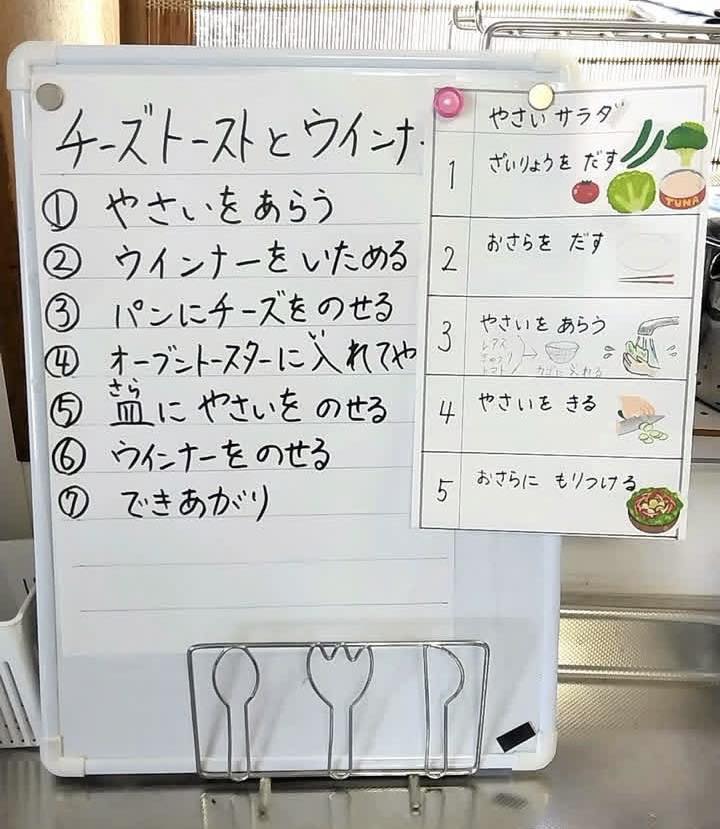 チーズトーストとウインナ
① やさいをあらう
② ウインナーをいためる
③ パンにチーズをのせる
④ オーブントースターに入れてや
い
⑤ 皿にやさいをのせる
さら
⑥ ウインナーをのせる
⑦ できあがり
やさいサラダ
1 ざいりょうを だす
TUNA
2 おさらを だす
3 やさいを あらう
レタス
きゅうり
トマト
カゴに入れる
4 やさいを きる
5 おさらに もりつける